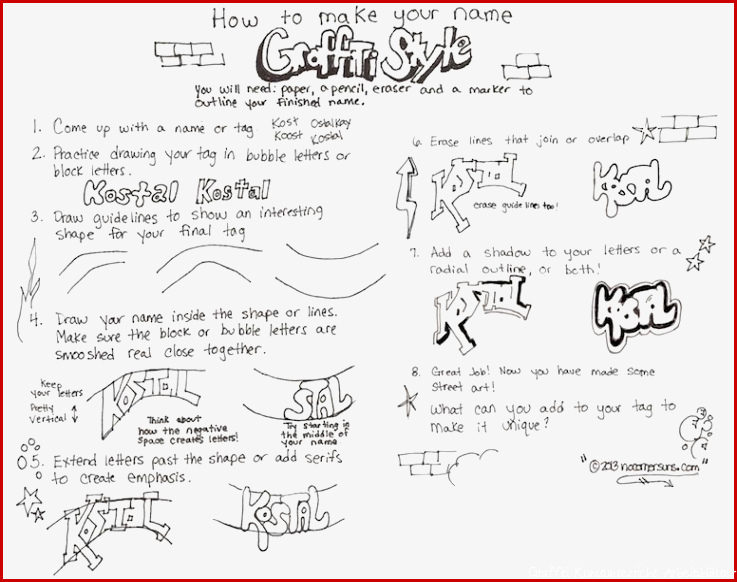 How to make your name
Graffiti Style
You will need: paper, a pencil, eraser and a marker to
outline your finished name.
1. Come up with a name or tag
Kost Ostalkay
Koost Kostal
2. Practice drawing your tag in bubble letters or
block letters.
Kostal Kostal
3. Draw guidelines to show an interesting
shape for your final tag
4. Draw your name inside the shape or lines.
Make sure the block or bubble letters are
smooshed real close together.
Keep
your letters
Pretty
vertical
KOSTAL
Think about
how the negative
space creates letters!
STAL
Try starting in
the middle of
your name
5. Extend letters past the shape or add serifs
to create emphasis.
KOSTAL
KOSTAL
6. Erase lines that join or overlap
KOSTAL
erase guide lines too!
KOSTAL
7. Add a shadow to your letters or a
radial outline, or both!
KOSTAL
KOSTAL
8. Great Job! Now you have made some
street art!
What can you add to your tag to
make it unique?
"©2013 nocornersuns.com"